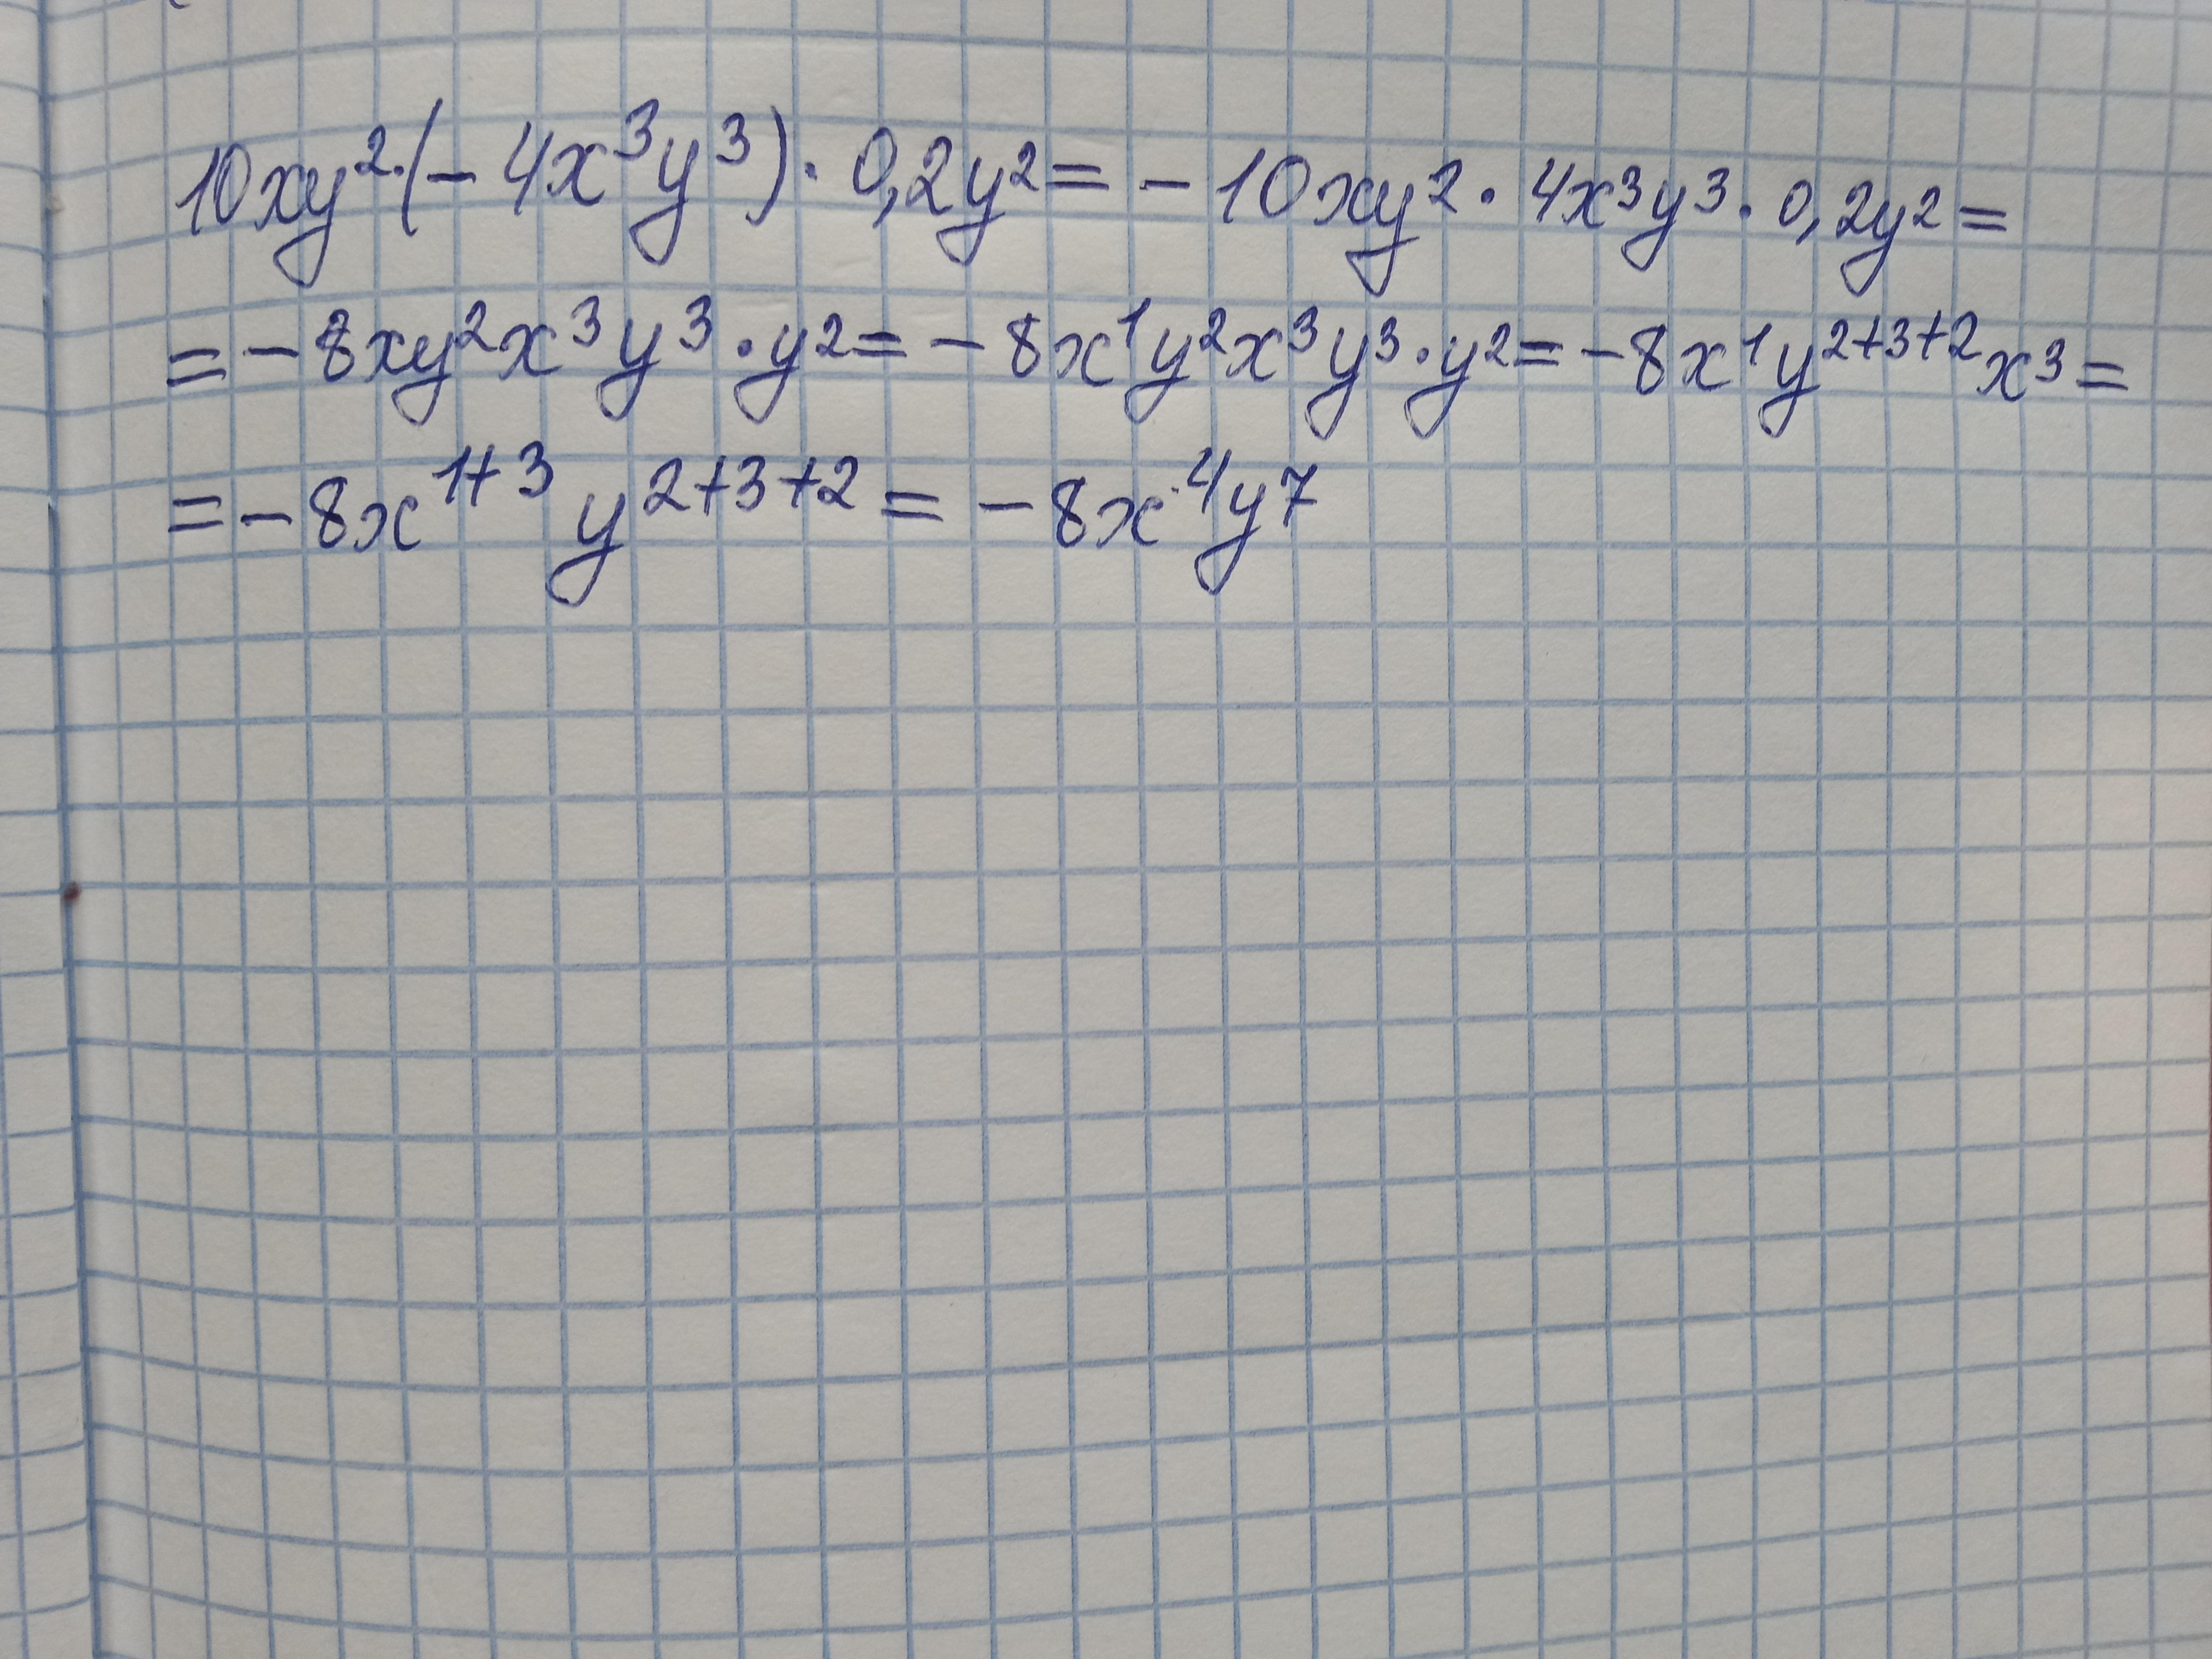 10xy²·(-4x³y³)·0,2y²=-10xy²·4x³y³·0,2y²=
=-8xy²x³y³·y²=-8x¹y²x³y³·y²=-8x¹y²⁺³⁺²x³=
=-8x¹⁺³y²⁺³⁺²=-8x⁴y⁷